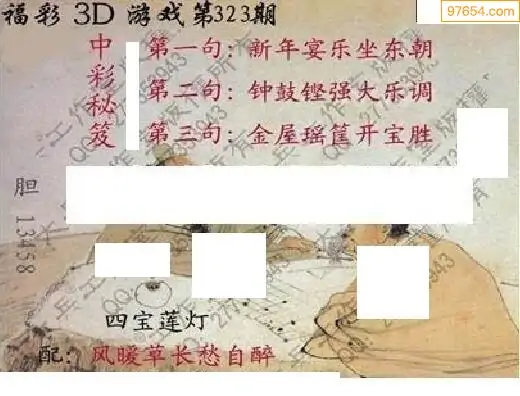 97654.com
福彩 3D 游戏第323期
中彩秘笈
第一句：新年宴乐坐东朝
第二句：钟鼓铿强大乐调
第三句：金屋瑶筐开宝胜
胆 13458
四宝莲灯
配：风暖草长愁自醉